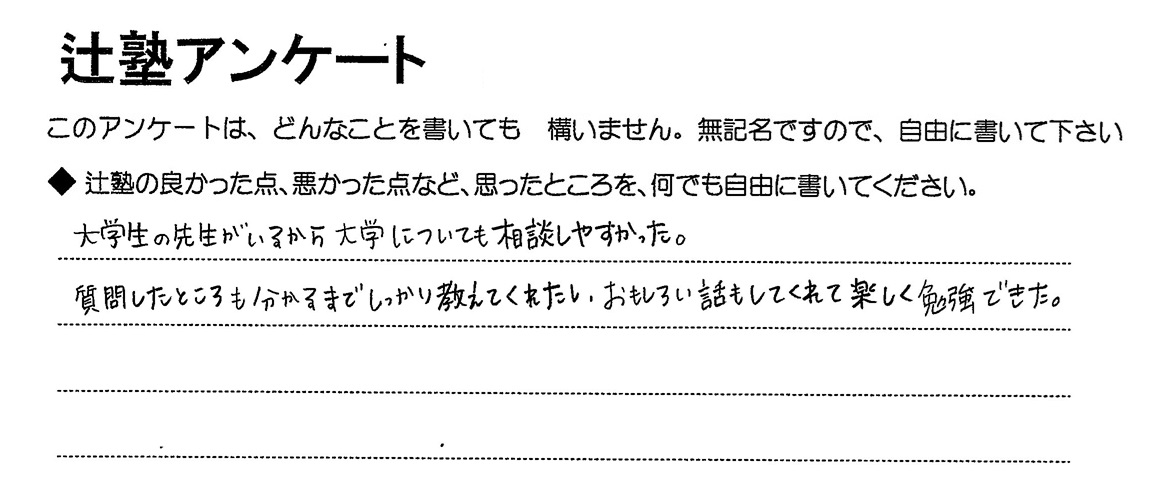 辻塾アンケート
このアンケートは、どんなことを書いても 構いません。無記名ですので、自由に書いて下さい
◆ 辻塾の良かった点、悪かった点など、思ったところを、何でも自由に書いてください。
大学生の先生がいるから大学についても相談しやすかった。
質問したところも分かるまでしっかり教えてくれたし、おもしろい話もしてくれて楽しく勉強できた。